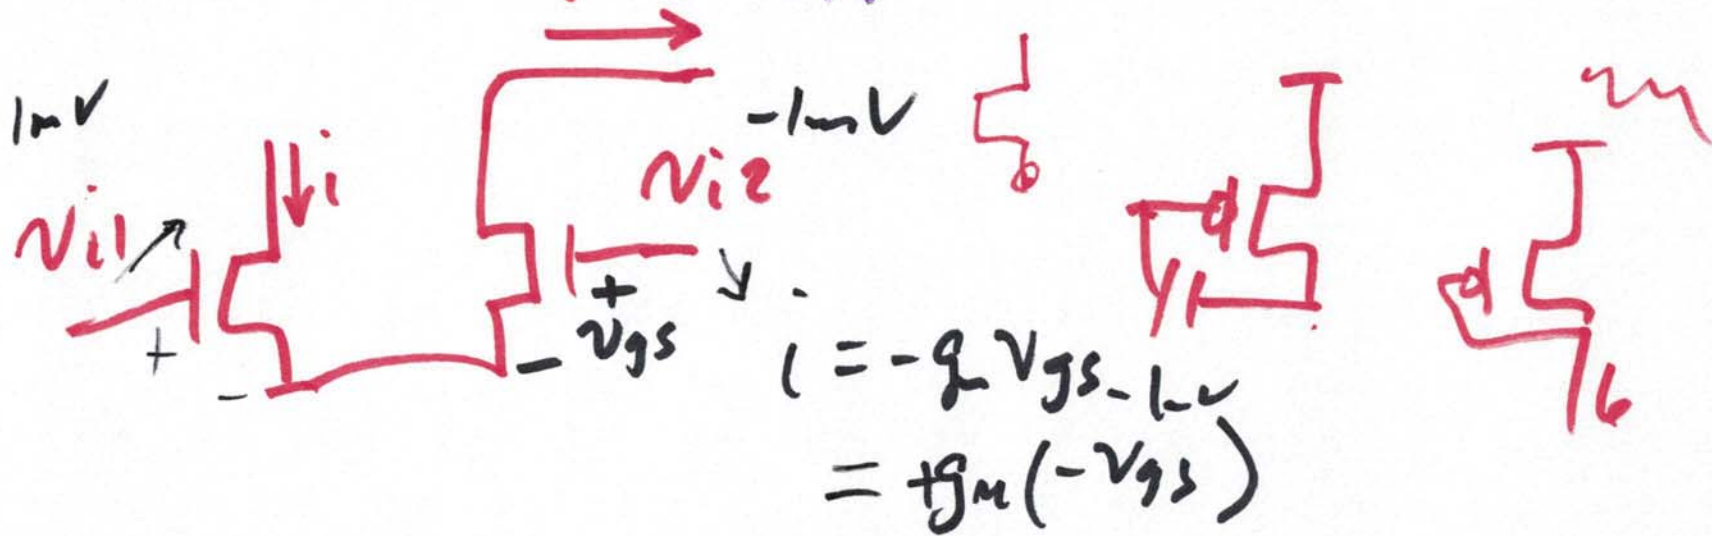 1mV
-1mV
Vi1
i
Vi2
+
-
+
-
Vgs
i = -gm Vgs -1mV
= +gm(-Vgs)